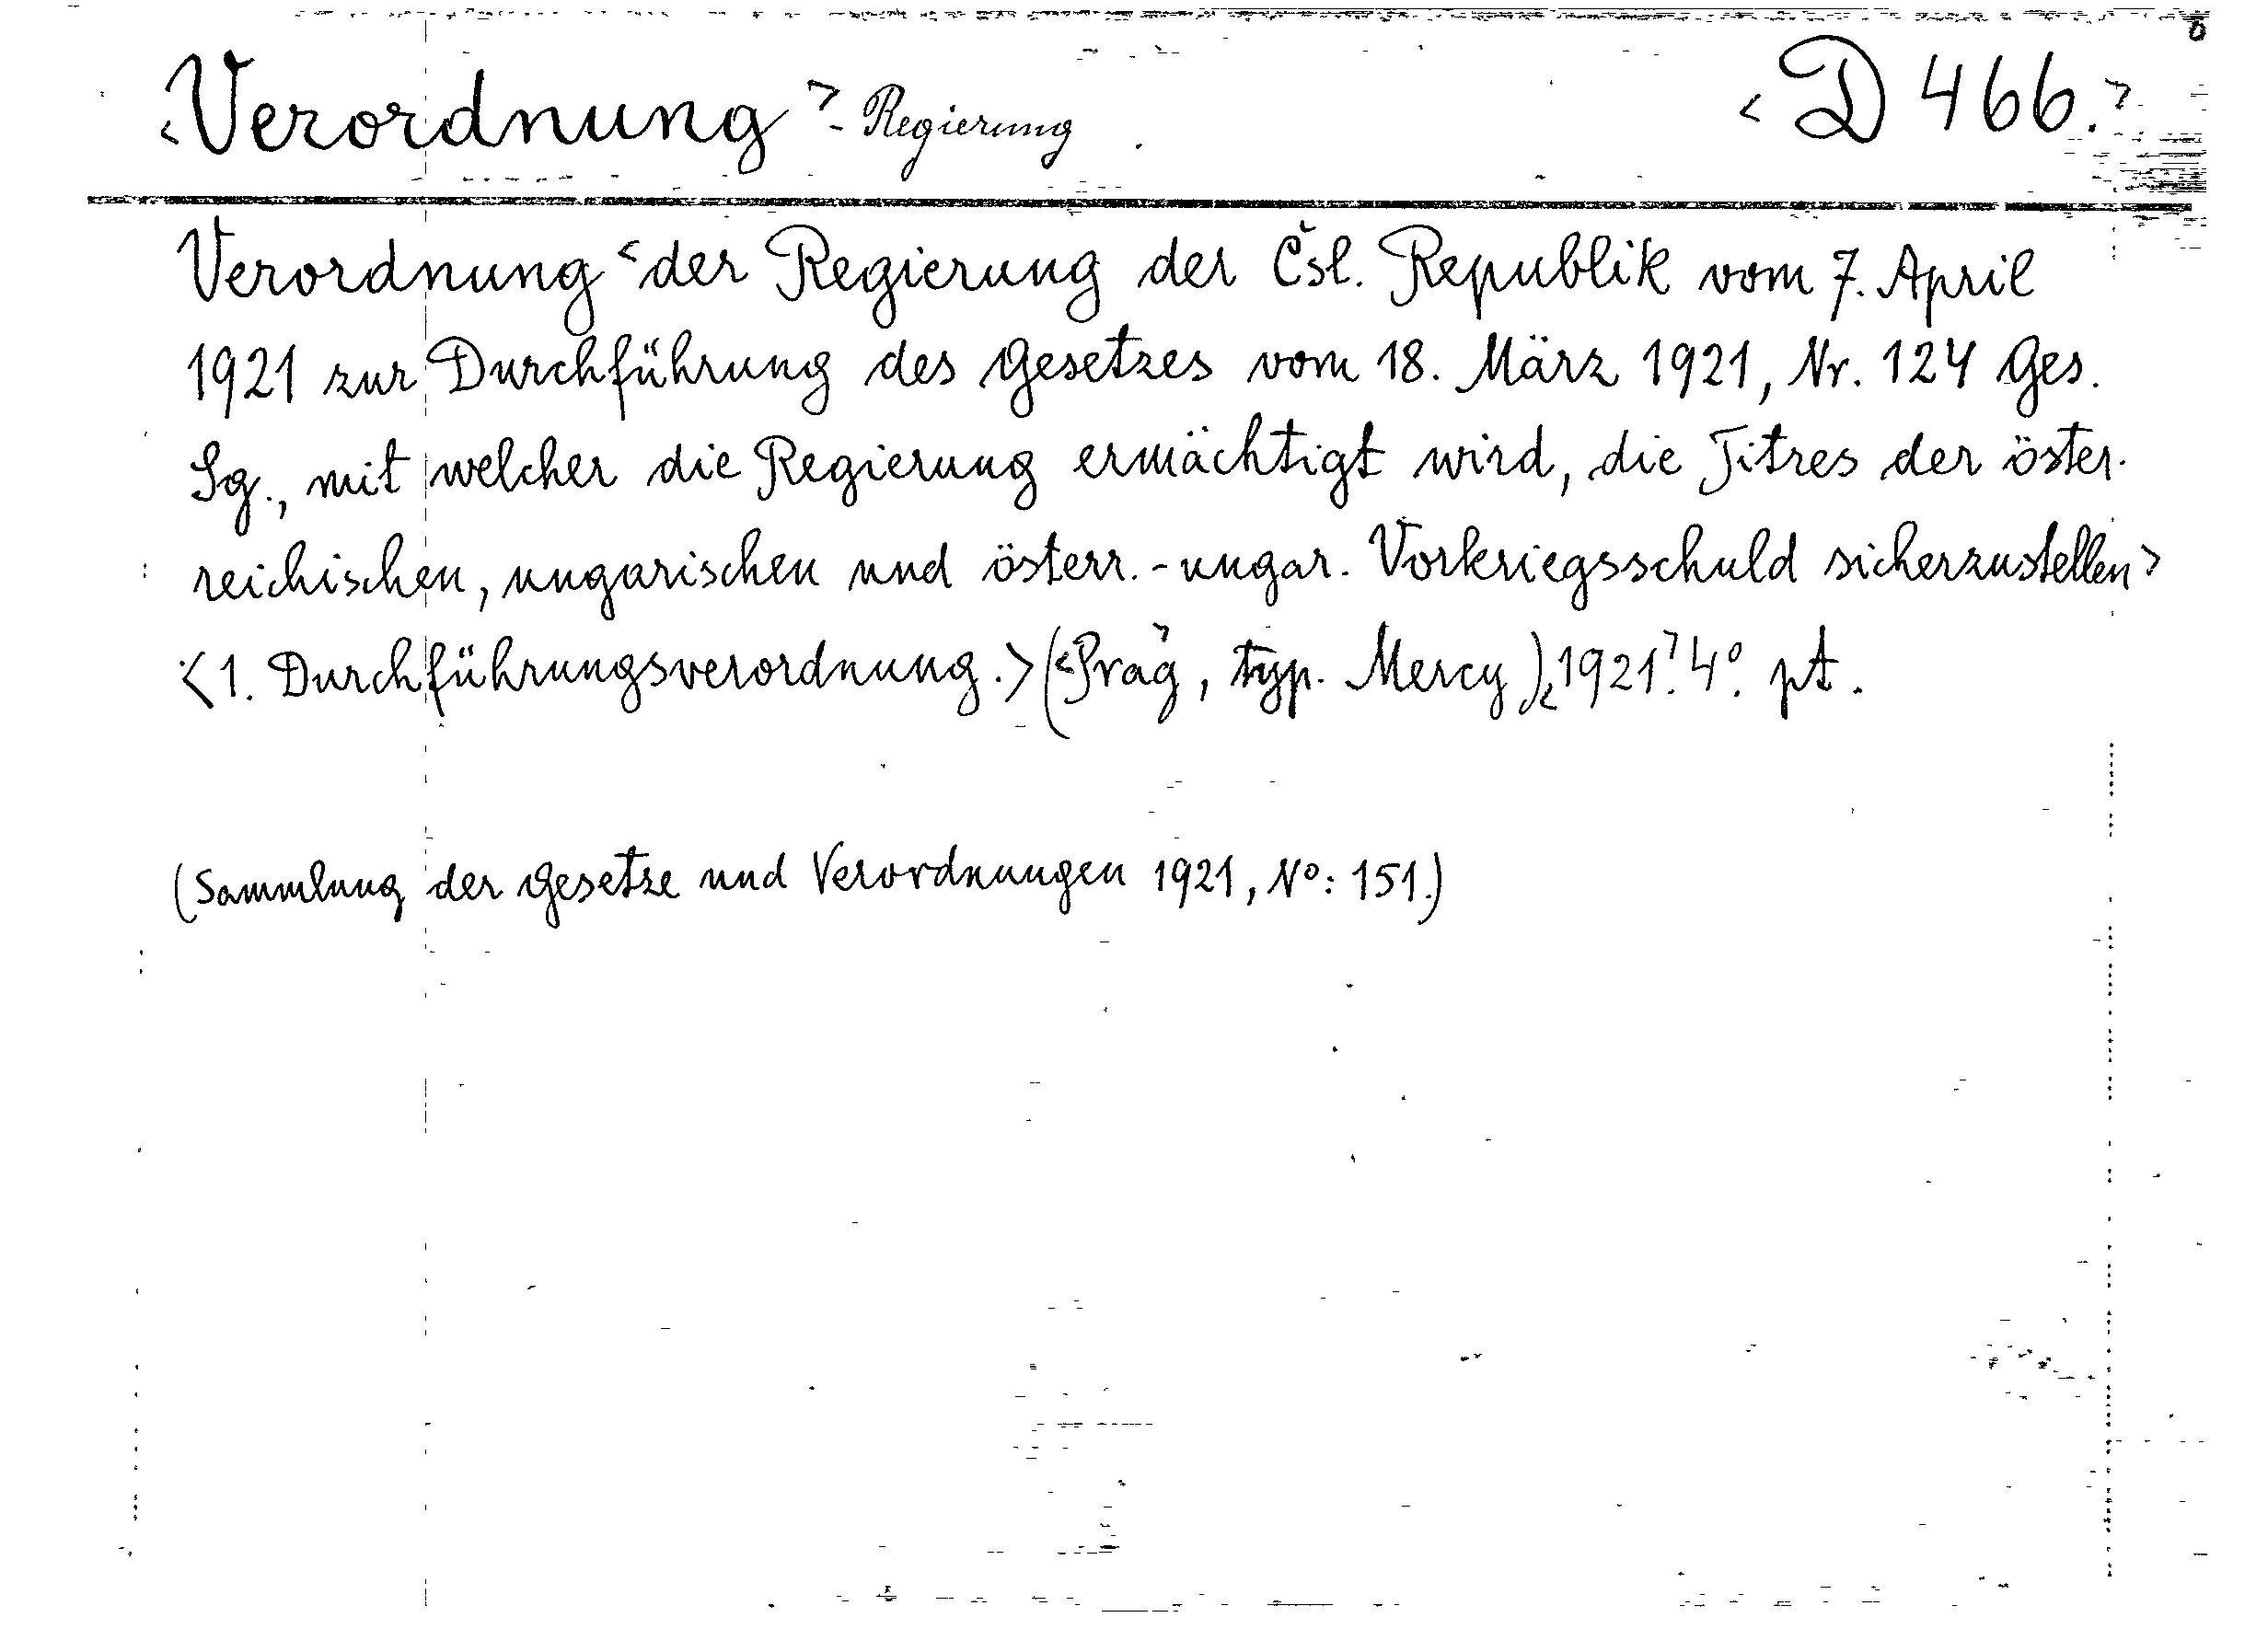 <Verordnung> - Regierung <D 466.>
Verordnung <der Regierung der Čsl. Republik vom 7. April
1921 zur Durchführung des Gesetzes vom 18. März 1921, Nr. 124 Ges.
Sg., mit welcher die Regierung ermächtigt wird, die Titres der öster-
reichischen, ungarischen und österr.-ungar. Vorkriegsschuld sicherzustellen>
<1. Durchführungsverordnung.> (<Prag>, typ. Mercy), <1921>. 4°. pt.
(Sammlung der Gesetze und Verordnungen 1921, N°: 151.)